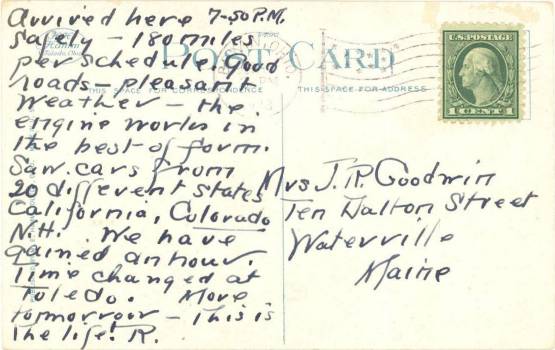 arrived here 7-50 P.M.
Safely - 180 miles
per schedule. Good
roads - pleasant
Weather - the
engine works in
the best of form.
Saw cars from
20 different states
California, Colorado
N.H. We have
gained an hour.
Time changed at
Toledo. More
tomorrow - This is
the life! R.
POST CARD
THIS SPACE FOR CORRESPONDENCE
THIS SPACE FOR ADDRESS
U.S. POSTAGE
1 CENT 1
Mrs J.R. Goodwin
Ten Dalton Street
Waterville
Maine